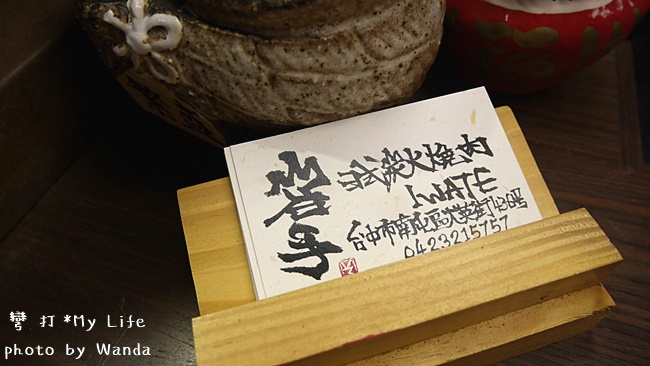 岩手
日式炭火燒肉
IWATE
台中市南屯區大英街436號
0423215757
彎 打 *My Life
photo by Wanda